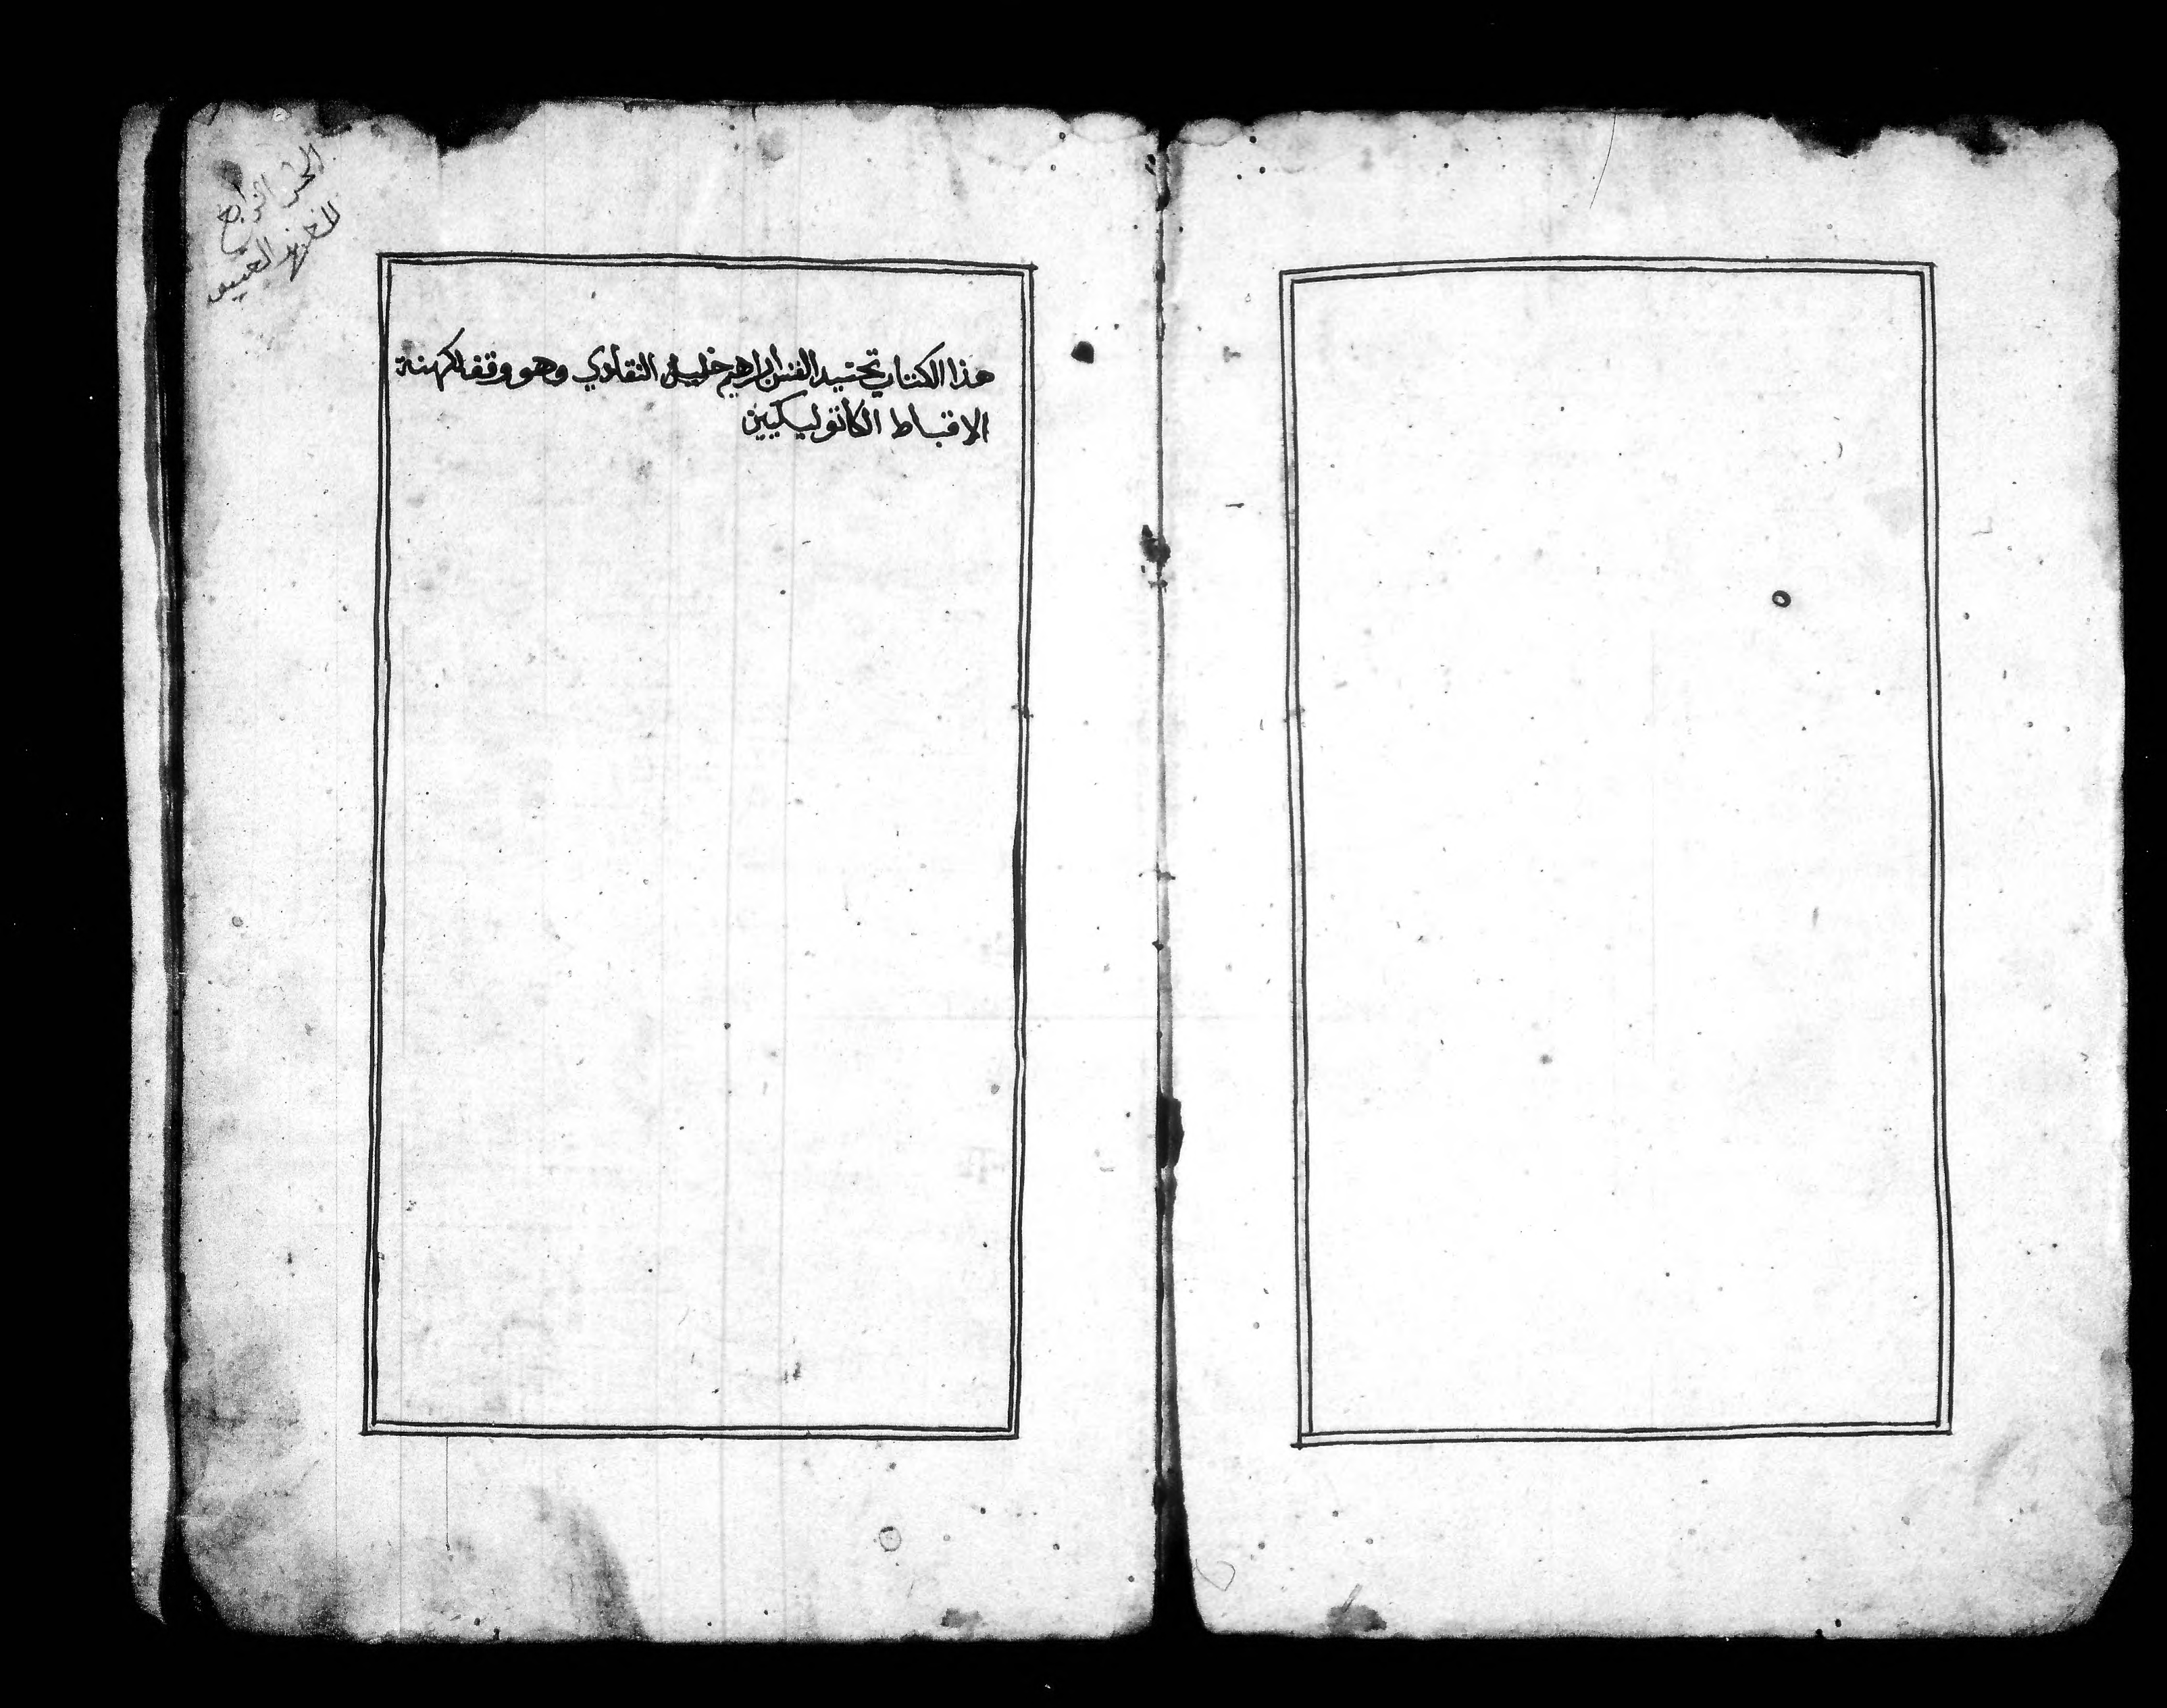 الجزء الرابع
للعهد العتيق
هذا الكتاب تحت يد القس ابراهيم خليل النقادي وهو وقف لكهنة
الاقباط الكاتوليكيين